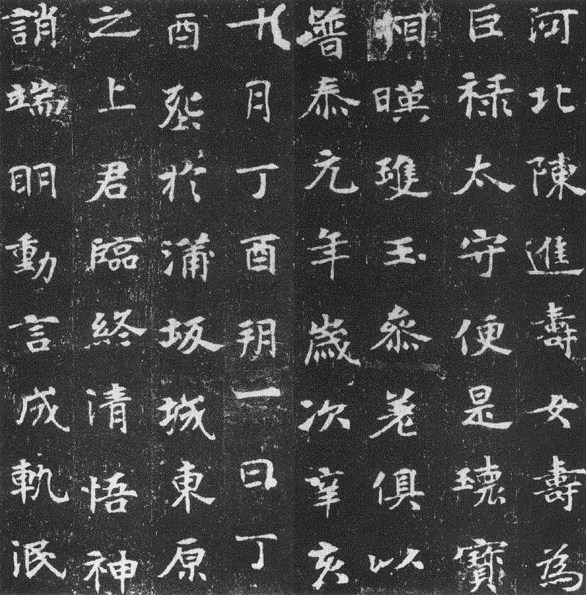 河北陳進壽女壽為
巨祿太守便是瓌寶
相暎瓊玉參差俱以
普泰元年歲次辛亥
十月丁酉朔一日丁
酉塟於蒲坂城東原
之上君臨終清悟神
誚端眀動言成軌泯